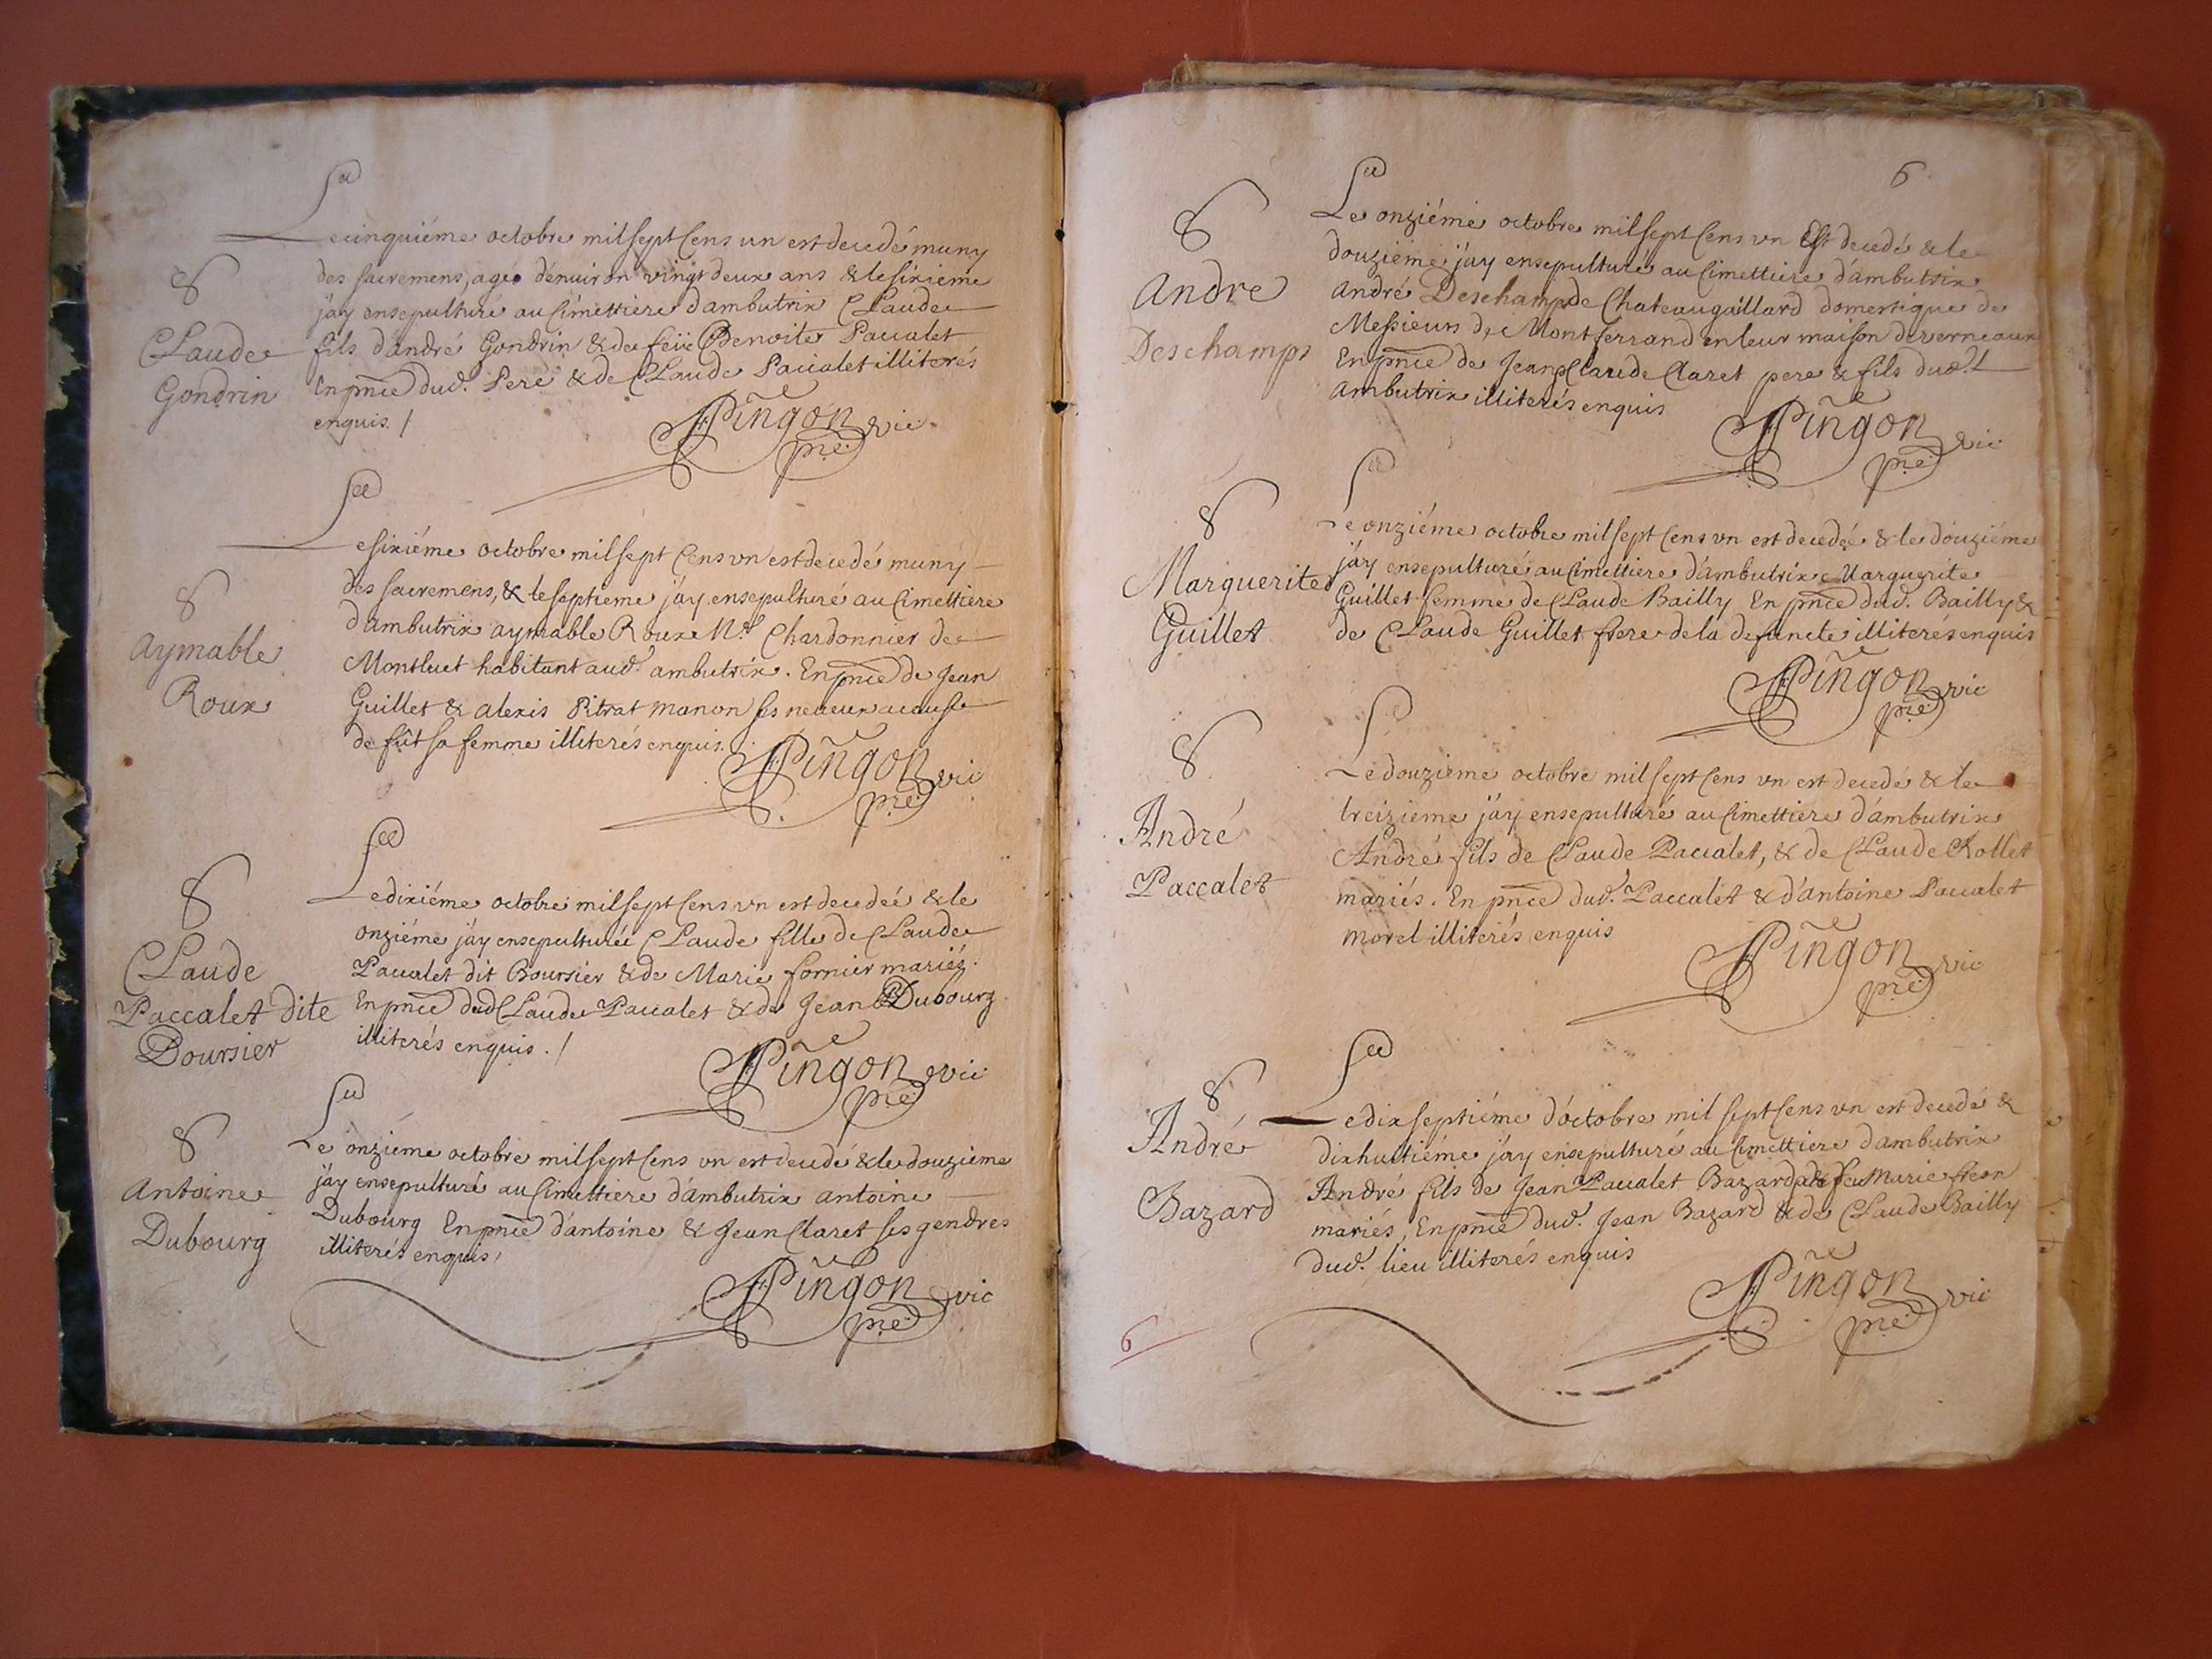 Claude
Gondrin
Le cinquiéme octobre mil sept cens un est decedé muny
des sacremens, agé d'enuiron vingt deux ans & le sixieme
j'ay ensepulturé au Cimettiere d'ambutrix Claude
fils d'andré Gondrin & de feüe Benoite Paccalet
En pnce dud. Pere & de Claude Paccalet illiterés
enquis. /
Pingon vic
pre
Aymable
Roux
Le sixiéme octobre mil sept cens vn est decedé muny
des sacremens, & le septieme j'ay ensepulturé au Cimettiere
d'ambutrix aymable Roux Me Chardonnier de
Montluet habitant aud. ambutrix. En pnce de Jean
Guillet & alexis Pitrat manon ses neueux a cause
de fût sa femme illiterés enquis.
Pingon vic
pre
Claude
Paccalet dite
Boursier
Le dixiéme octobre mil sept cens vn est decedeé & le
onziéme j'ay ensepulturéé Claude fille de Claude
Paccalet dit Boursier & de Marie fornier mariés.
En pnce dud Claude Paccalet & de Jean Dubourg
illiterés enquis. /
Pingon vic
pre
Antoine
Dubourg
Le onzieme octobre mil sept cens vn est decedé & le douzieme
j'ay ensepulturé au Cimettiere d'ambutrix antoine
Dubourg En pnce d'antoine & Jean Claret ses gendres
illiterés enquis,
Pingon vic
pre
6
Andre
Deschamps
Le onziéme octobre mil sept cens vn Est decedé & le
douzieme j'ay ensepulturé au Cimettiere d'ambutrix
André Deschamps de Chateaugaillard domestique de
Messieurs de Montferrand en leur maison de verneaux
En pnce de Jean Claude Claret pere & fils dud.
Ambutrix illiterés enquis
Pingon vic
pre
Marguerite
Guillet
Le onziéme octobre mil sept cens vn est decedeé & le douziéme
j'ay ensepulturé au Cimettiere d'ambutrix Marguerite
Guillet femme de Claude Bailly En pnce dud. Bailly &
de Claude Guillet frere de la defuncte illiterés enquis
Pingon vic
pre
André
Paccalet
Le douzieme octobre mil sept cens vn est decedé & le
treizieme j'ay ensepulturé au Cimettiere d'ambutrix
André fils de Claude Paccalet, & de Claude Rollet
mariés. En pnce dud. Paccalet & d'antoine Paccalet
morel illiterés enquis
Pingon vic
pre
André
Bazard
Le dix septiéme d'octobre mil sept cens vn est decedé &
dixhuitiéme j'ay ensepulturé au Cimettiere d'ambutrix
André fils de Jean Paccalet Bazard & de feu Marie freon
mariés, En pnce dud. Jean Bazard & de Claude Bailly
dud. lieu illiterés enquis
Pingon vic
pre
6